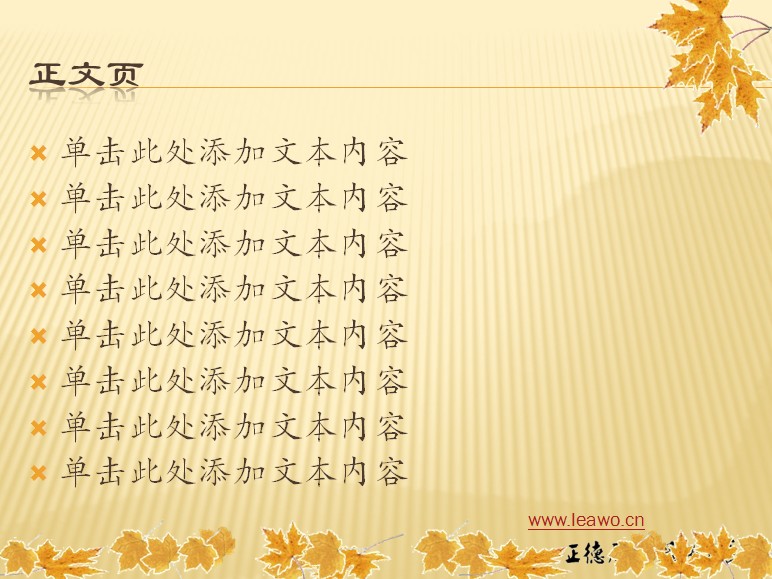 正文页
单击此处添加文本内容
单击此处添加文本内容
单击此处添加文本内容
单击此处添加文本内容
单击此处添加文本内容
单击此处添加文本内容
单击此处添加文本内容
单击此处添加文本内容
www.leawo.cn
正德